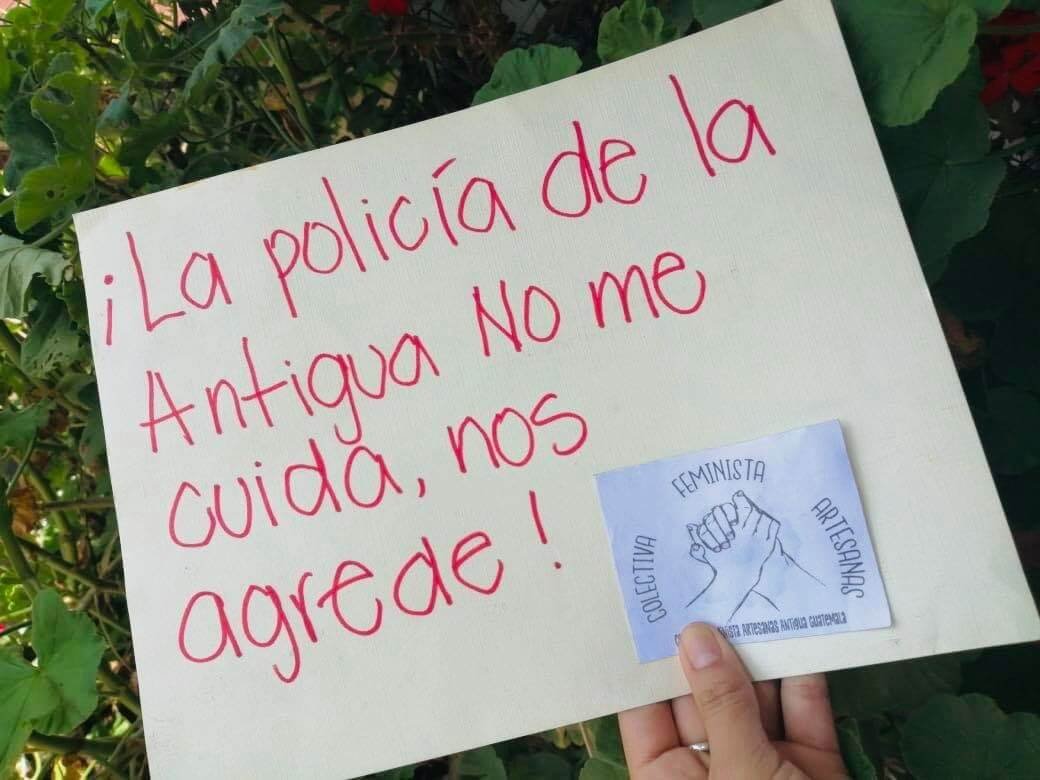 ¡La policía de la
Antigua No me
cuida, nos
agrede!
COLECTIVA
FEMINISTA
ARTESANAS
ARTESANAS ANTIGUA GUATEMALA